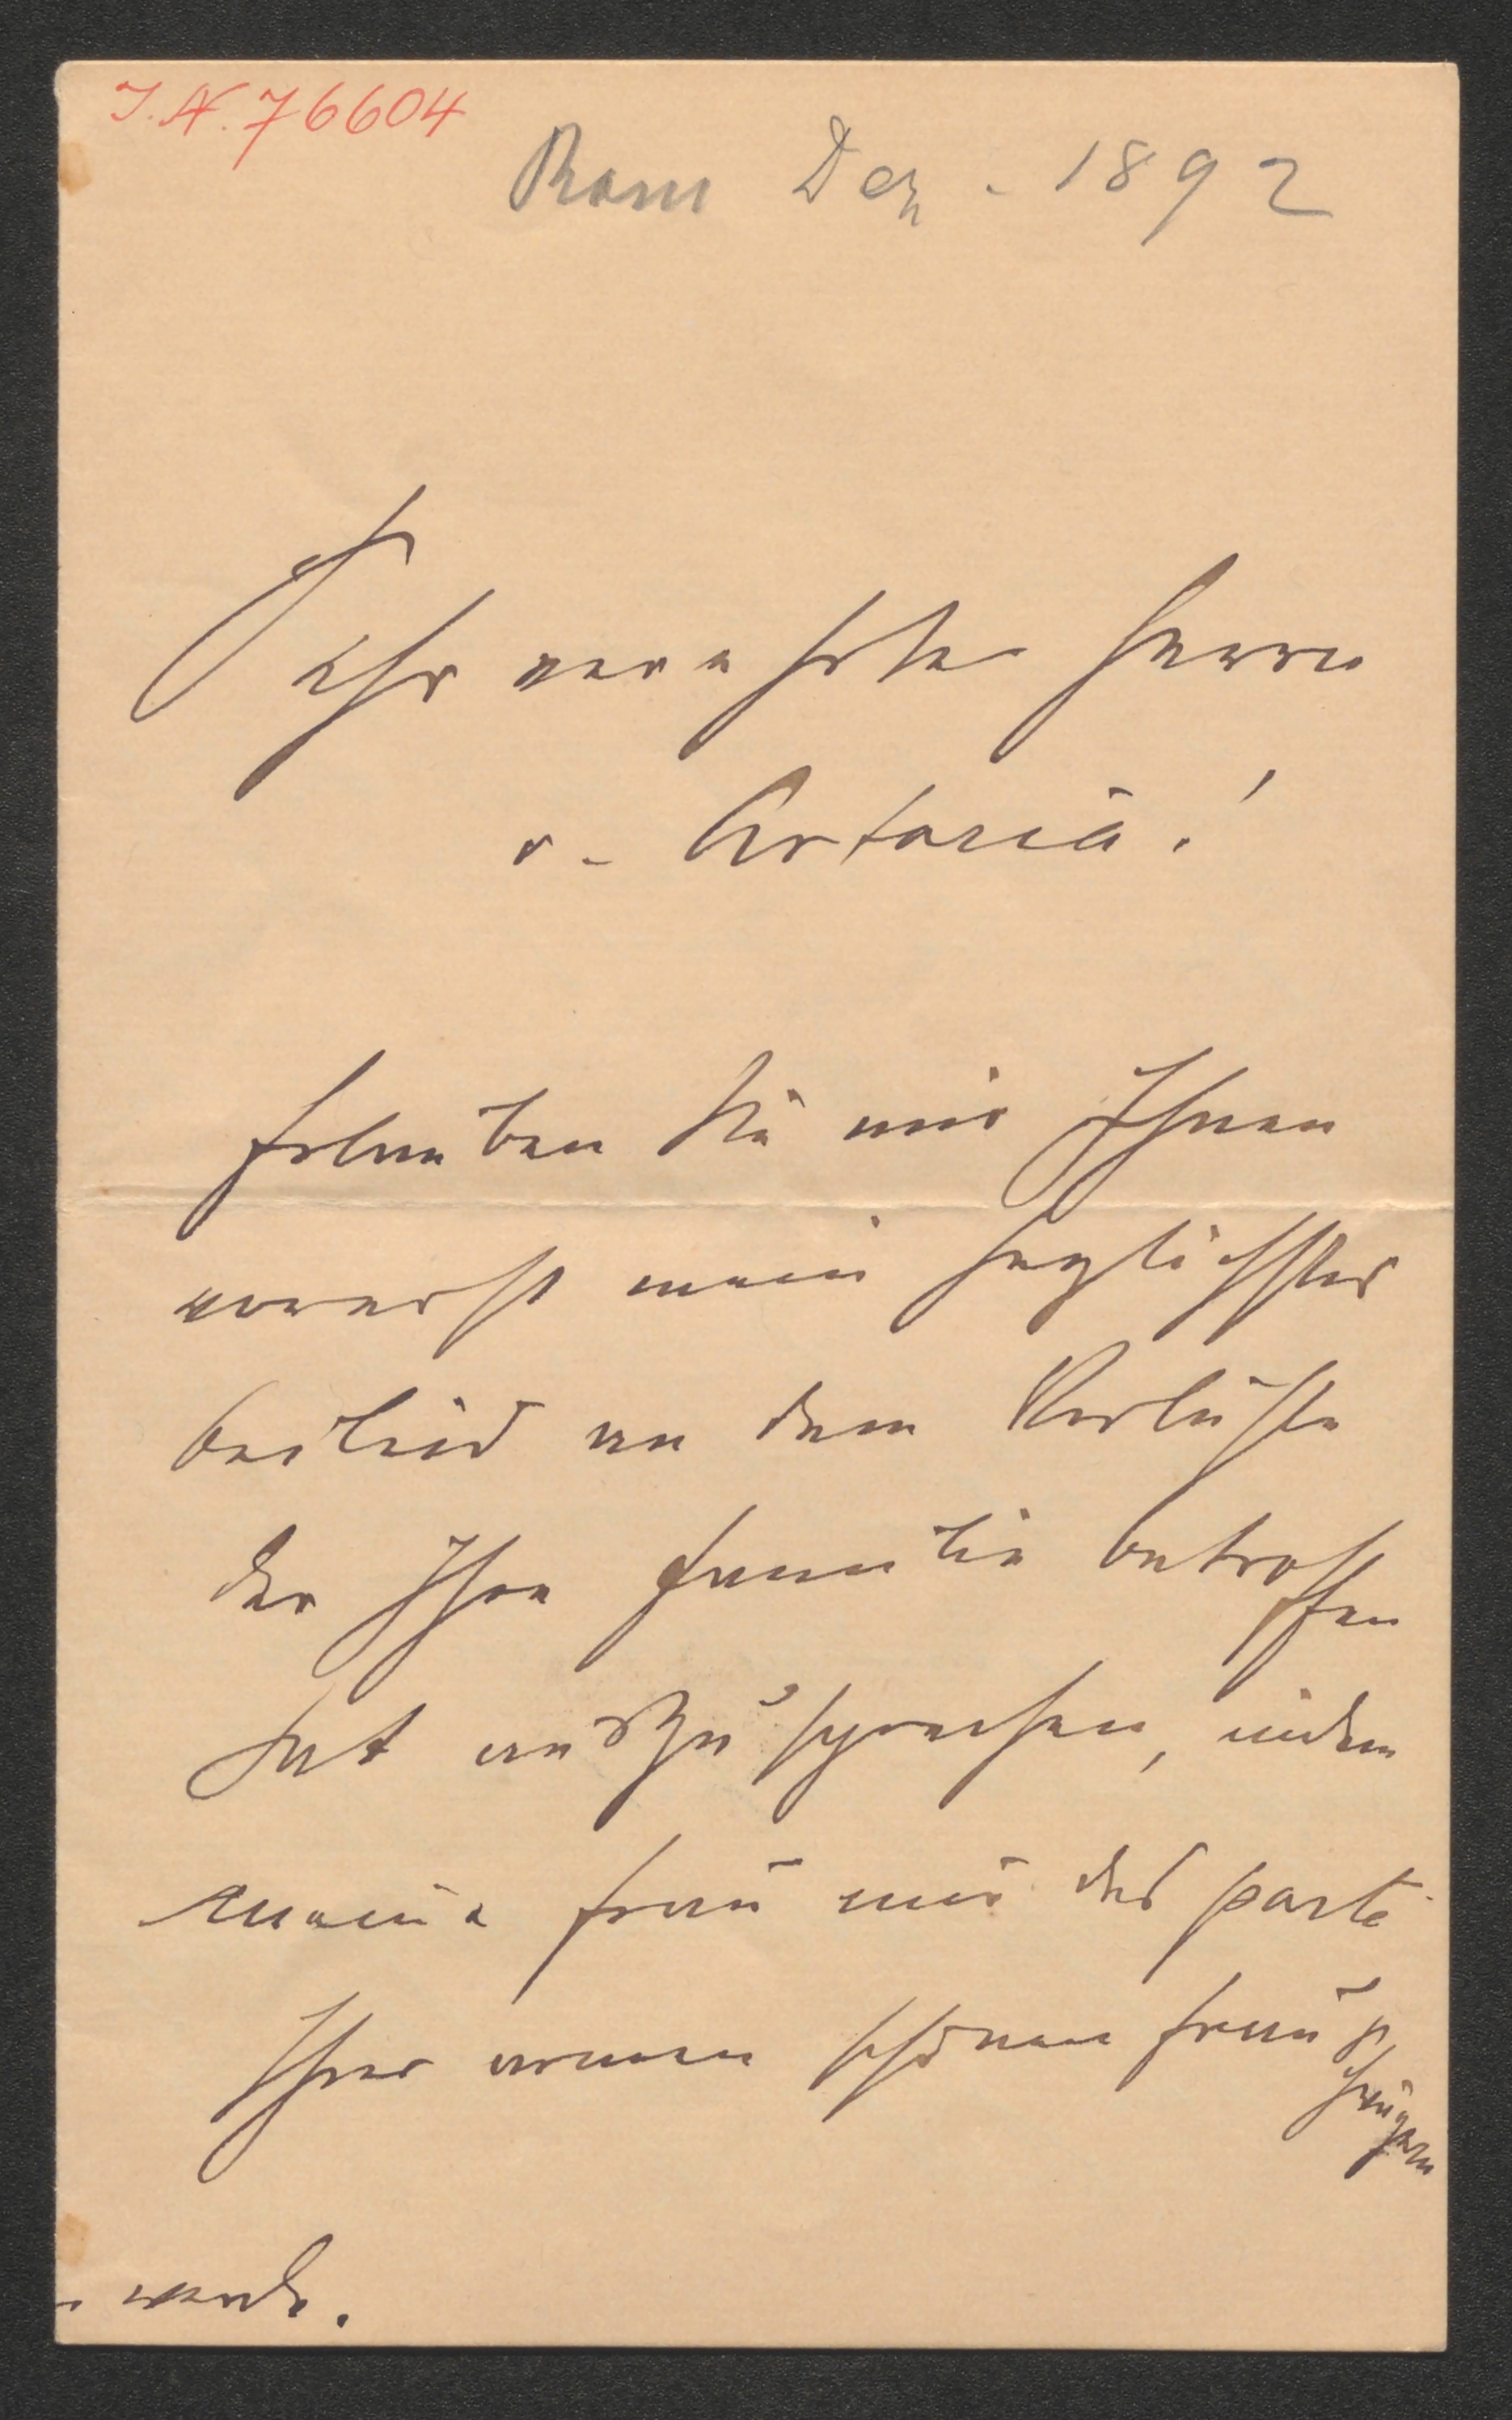 I.N. 76604
Rom Dez - 1892
Sehr verehrter Herr
v. Artaria!
Erlauben Sie mir Ihnen
vorerst mein herzlichstes
Beileid an dem Verluste
der Ihre Familie betroffen
hat auszusprechen, indem
meine Frau mir das Parte
Ihrer armen schönen Frau